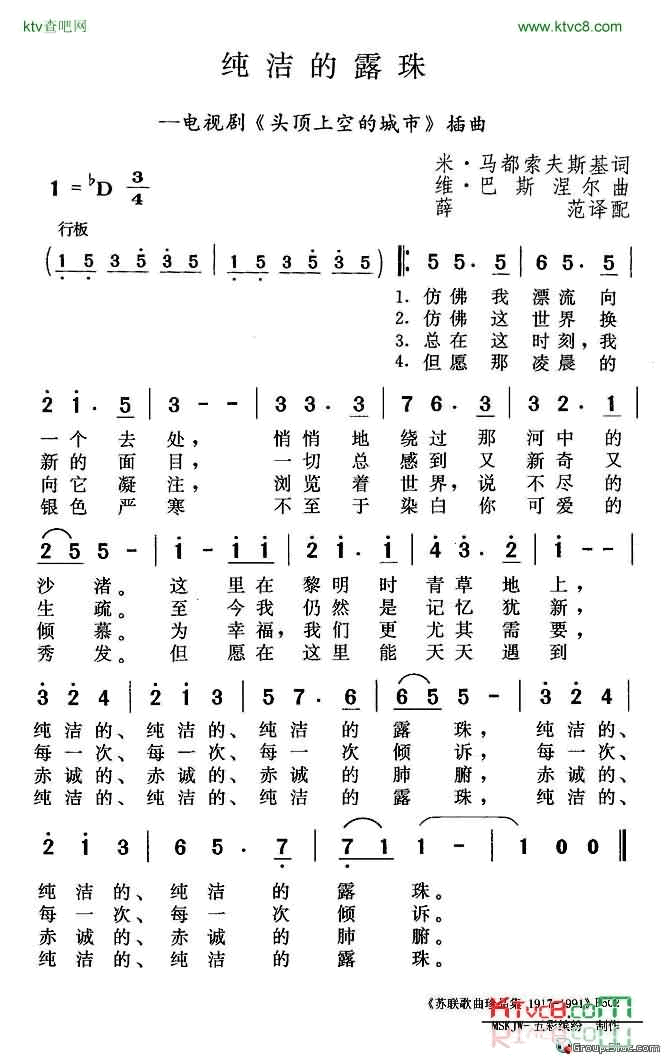 ktv查吧网
www.ktvc8.com
纯洁的露珠
—电视剧《头顶上空的城市》插曲
米·马都索夫斯基词
1=♭D 3/4
维·巴斯涅尔曲
薛范译配
行板
( 1 5 3 5 3 5 | 1 5 3 5 3 5 ) |: 5 5. 5 | 6 5. 5 |
1. 仿佛我漂流向
2. 仿佛这世界换
3. 总在这时刻,我
4. 但愿那凌晨的
2 1. 5 | 3 - - | 3 3. 3 | 7 6. 3 | 3 2. 1 |
一个去处, 悄悄地绕过那河中的
新的面目, 一切总感到又新奇又
向它凝注, 浏览着世界,说不尽的
银色严寒 不至于染白你可爱的
2 5 5 - | 1 - 1 1 | 2 1. 2 | 4 3. 2 | 1 - - |
沙渚。这里在黎明时青草地上,
生疏。至今我仍然是记忆犹新,
倾慕。为幸福,我们更尤其需要,
秀发。但愿在这里能天天遇到
3 2 4 | 2 1 3 | 5 7. 6 | 6 5 5 - | 3 2 4 |
纯洁的、纯洁的、纯洁的露珠,纯洁的、
每一次、每一次、每一次倾诉,每一次、
赤诚的、赤诚的、赤诚的肺腑,赤诚的、
纯洁的、纯洁的、纯洁的露珠,纯洁的、
2 1 3 | 6 5. 7 | 7 1 1 - | 1 0 0 ||
纯洁的、纯洁的露珠。
每一次、每一次倾诉。
赤诚的、赤诚的肺腑。
纯洁的、纯洁的露珠。
《苏联歌曲珍品集 1917-1991》P502
KTVC8.com
MSKJW- 五彩缤纷 制作